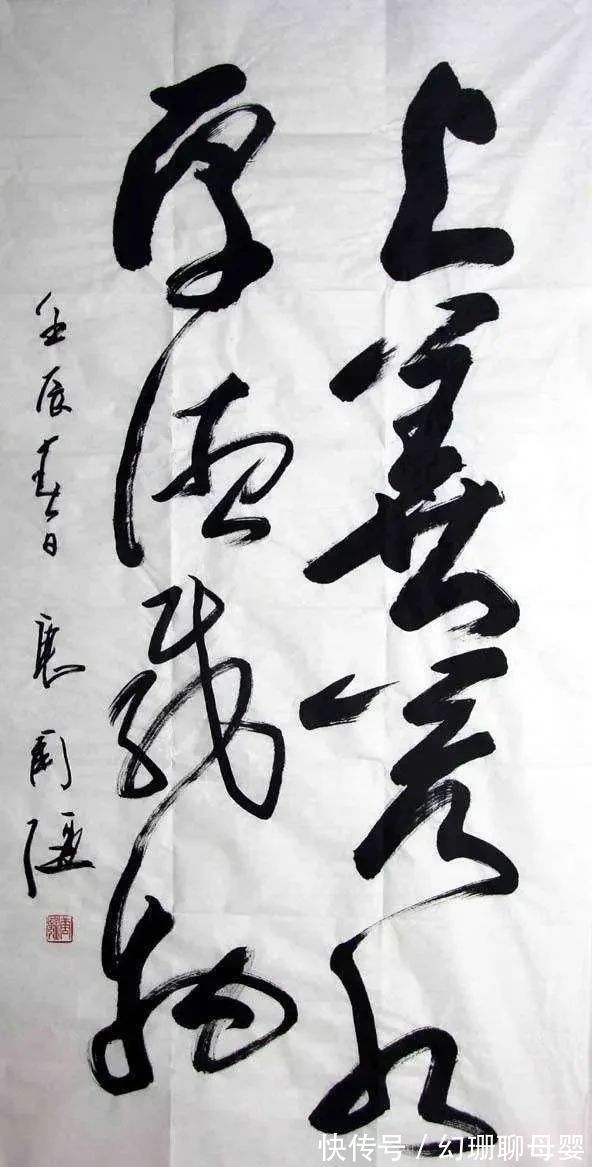 上善若水
厚德载物
壬辰春日
快传号／幻珊聊母婴